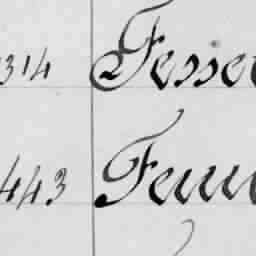 314 Fesse
443 Fe